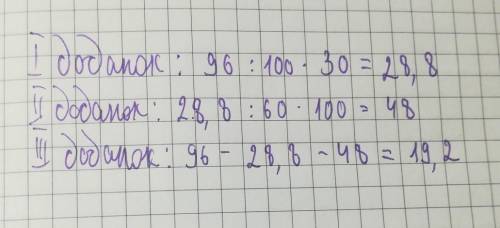 I доданок: 96 : 100 · 30 = 28,8
II доданок: 28,8 : 60 · 100 = 48
III доданок: 96 - 28,8 - 48 = 19,2